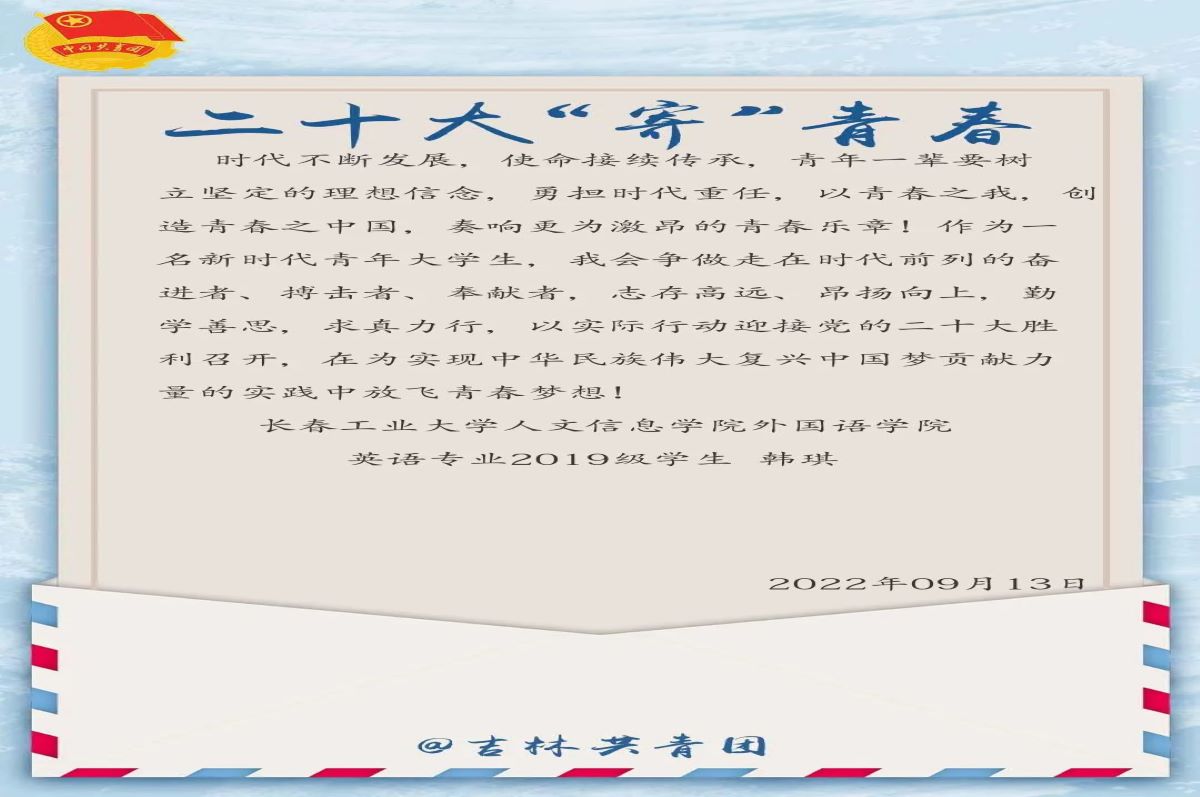 中国共青团
二十大“寄”青春
时代不断发展，使命接续传承，青年一辈要树
立坚定的理想信念，勇担时代重任，以青春之我，创
造青春之中国，奏响更为激昂的青春乐章！作为一
名新时代青年大学生，我会争做走在时代前列的奋
进者、搏击者、奉献者，志存高远、昂扬向上，勤
学善思，求真力行，以实际行动迎接党的二十大胜
利召开，在为实现中华民族伟大复兴中国梦贡献力
量的实践中放飞青春梦想！
长春工业大学人文信息学院外国语学院
英语专业2019级学生 韩琪
2022年09月13日
@吉林共青团